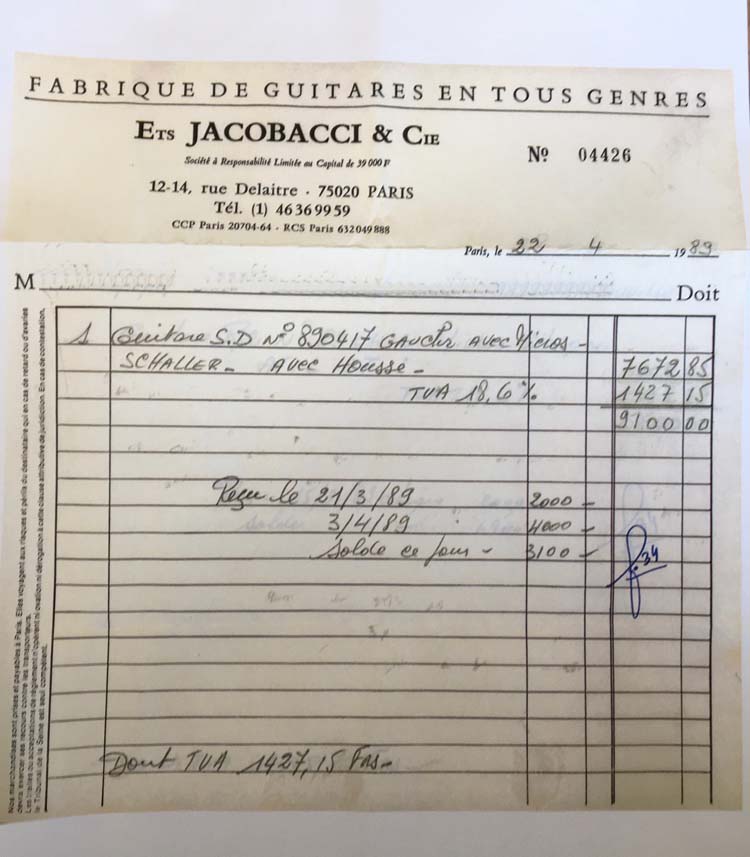 FABRIQUE DE GUITARES EN TOUS GENRES
Ets JACOBACCI & Cie
Société à Responsabilité Limitée au Capital de 39 000 F
Nº 04426
12-14, rue Delaitre - 75020 PARIS
Tél. (1) 46 36 99 59
CCP Paris 20704-64 - RCS Paris 632 049 888
Paris, le 22 - 4 1989
M Doit
1 Guitare S.D Nº 890417 GAUCHER AVEC Micros -
SCHALLER - AVEC Housse - 7672 85
TVA 18,6 % 1427 15
9100 00
Reçu le 21/3/89 2000 -
3/4/89 " 4000 -
Solde ce jour - 3100 -
34
Dont TVA 1427,15 Frs -
Nos marchandises sont prises et payables à Paris. Elles voyagent aux risques et périls du destinataire qui en cas de retard ou d'avaries
devra exercer ses recours contre les transporteurs.
Les traites ou acceptations de règlement n'opèrent ni novation ni dérogation à cette clause attributive de juridiction. En cas de contestation,
le Tribunal de la Seine est seul compétent.